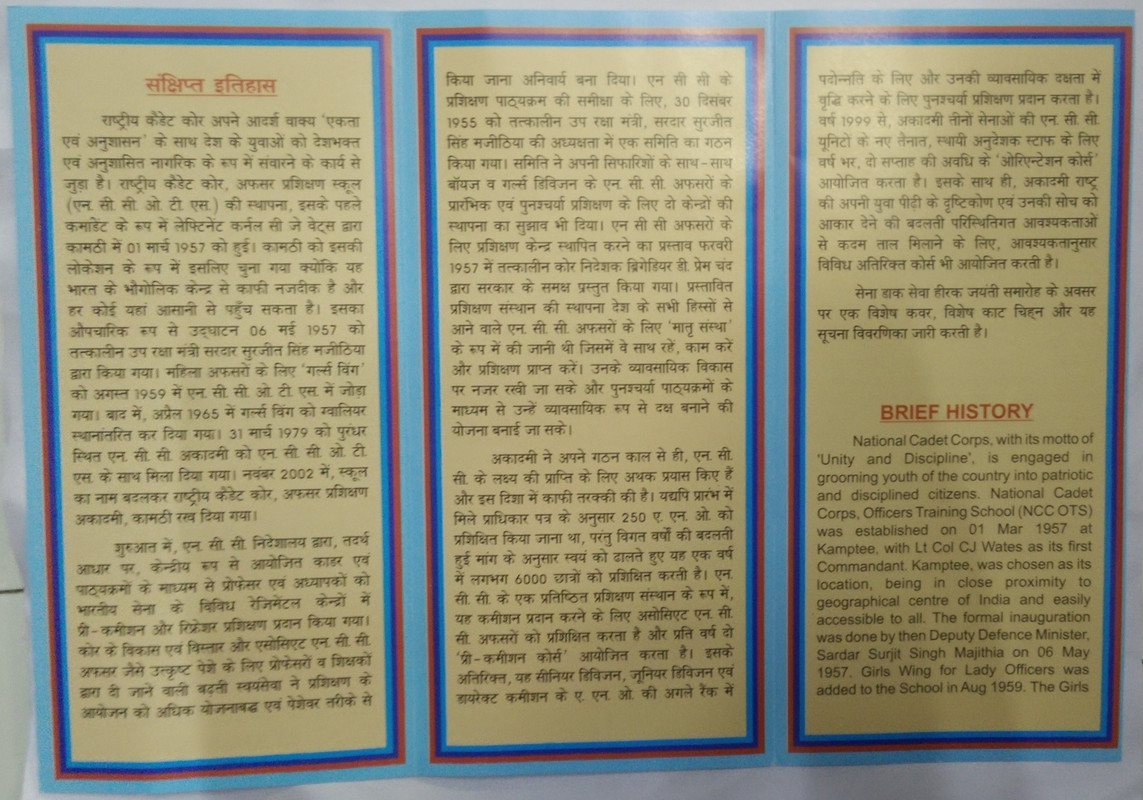 संक्षिप्त इतिहास
राष्ट्रीय कैडेट कोर अपने आदर्श वाक्य 'एकता
एवं अनुशासन' के साथ देश के युवाओं को देशभक्त
एवं अनुशासित नागरिक के रूप में संवारने के कार्य से
जुड़ा है। राष्ट्रीय कैडेट कोर, अफसर प्रशिक्षण स्कूल
(एन. सी. सी. ओ. टी. एस.) की स्थापना, इसके पहले
कमांडेंट के रूप में लेफ्टिनेंट कर्नल सी जे वेट्स द्वारा
कामठी में 01 मार्च 1957 को हुई। कामठी को इसकी
लोकेशन के रूप में इसलिए चुना गया क्योंकि यह
भारत के भौगोलिक केन्द्र से काफी नजदीक है और
हर कोई यहां आसानी से पहुँच सकता है। इसका
औपचारिक रूप से उद्घाटन 06 मई 1957 को
तत्कालीन उप रक्षा मंत्री सरदार सुरजीत सिंह मजीठिया
द्वारा किया गया। महिला अफसरों के लिए 'गर्ल्स विंग'
को अगस्त 1959 में एन. सी. सी. ओ. टी. एस. में जोड़ा
गया। बाद में, अप्रैल 1965 में गर्ल्स विंग को ग्वालियर
स्थानांतरित कर दिया गया। 31 मार्च 1979 को पुरंधर
स्थित एन. सी. सी. अकादमी को एन. सी. सी. ओ. टी.
एस. के साथ मिला दिया गया। नवंबर 2002 में, स्कूल
का नाम बदलकर राष्ट्रीय कैडेट कोर, अफसर प्रशिक्षण
अकादमी, कामठी रख दिया गया।
शुरुआत में, एन. सी. सी. निदेशालय द्वारा, तदर्थ
आधार पर, केन्द्रीय रूप से आयोजित काडर एवं
पाठ्यक्रमों के माध्यम से प्रोफेसर एवं अध्यापकों को
भारतीय सेना के विविध रेजिमेंटल केन्द्रों में
प्री-कमीशन और रिफ्रेशर प्रशिक्षण प्रदान किया गया।
कोर के विकास एवं विस्तार और एसोसिएट एन. सी. सी.
अफसर जैसे उत्कृष्ट पेशे के लिए प्रोफेसरों व शिक्षकों
द्वारा दी जाने वाली बढ़ती स्वयंसेवा ने प्रशिक्षण के
आयोजन को अधिक योजनाबद्ध एवं पेशेवर तरीके से
किया जाना अनिवार्य बना दिया। एन सी सी के
प्रशिक्षण पाठ्यक्रम की समीक्षा के लिए, 30 दिसंबर
1955 को तत्कालीन उप रक्षा मंत्री, सरदार सुरजीत
सिंह मजीठिया की अध्यक्षता में एक समिति का गठन
किया गया। समिति ने अपनी सिफारिशों के साथ-साथ
बॉयज व गर्ल्स डिविजन के एन. सी. सी. अफसरों के
प्रारंभिक एवं पुनश्चर्या प्रशिक्षण के लिए दो केन्द्रों की
स्थापना का सुझाव भी दिया। एन सी सी अफसरों के
लिए प्रशिक्षण केन्द्र स्थापित करने का प्रस्ताव फरवरी
1957 में तत्कालीन कोर निदेशक ब्रिगेडियर डी. प्रेम चंद
द्वारा सरकार के समक्ष प्रस्तुत किया गया। प्रस्तावित
प्रशिक्षण संस्थान की स्थापना देश के सभी हिस्सों से
आने वाले एन. सी. सी. अफसरों के लिए 'मातृ संस्था'
के रूप में की जानी थी जिसमें वे साथ रहें, काम करें
और प्रशिक्षण प्राप्त करें। उनके व्यावसायिक विकास
पर नजर रखी जा सके और पुनश्चर्या पाठ्यक्रमों के
माध्यम से उन्हें व्यावसायिक रूप से दक्ष बनाने की
योजना बनाई जा सके।
अकादमी ने अपने गठन काल से ही, एन. सी.
सी. के लक्ष्य की प्राप्ति के लिए अथक प्रयास किए हैं
और इस दिशा में काफी तरक्की की है। यद्यपि प्रारंभ में
मिले प्राधिकार पत्र के अनुसार 250 ए. एन. ओ. को
प्रशिक्षित किया जाना था, परंतु विगत वर्षों की बदलती
हुई मांग के अनुसार स्वयं को ढालते हुए यह एक वर्ष
में लगभग 6000 छात्रों को प्रशिक्षित करती है। एन.
सी. सी. के एक प्रतिष्ठित प्रशिक्षण संस्थान के रूप में,
यह कमीशन प्रदान करने के लिए असोसिएट एन. सी.
सी. अफसरों को प्रशिक्षित करता है और प्रति वर्ष दो
'प्री-कमीशन कोर्स' आयोजित करता है। इसके
अतिरिक्त, यह सीनियर डिविजन, जूनियर डिविजन एवं
डायरेक्ट कमीशन के ए. एन. ओ. की अगले रैंक में
पदोन्नति के लिए और उनकी व्यावसायिक दक्षता में
वृद्धि करने के लिए पुनश्चर्या प्रशिक्षण प्रदान करता है।
वर्ष 1999 से, अकादमी तीनों सेनाओं की एन. सी. सी.
यूनिटों के नए तैनात, स्थायी अनुदेशक स्टाफ के लिए
वर्ष भर, दो सप्ताह की अवधि के 'ओरिएन्टेशन कोर्स'
आयोजित करता है। इसके साथ ही, अकादमी राष्ट्र
की अपनी युवा पीढ़ी के दृष्टिकोण एवं उनकी सोच को
आकार देने की बदलती परिस्थितिगत आवश्यकताओं
से कदम ताल मिलाने के लिए, आवश्यकतानुसार
विविध अतिरिक्त कोर्स भी आयोजित करती है।
सेना डाक सेवा हीरक जयंती समारोह के अवसर
पर एक विशेष कवर, विशेष काट चिह्न और यह
सूचना विवरणिका जारी करती है।
BRIEF HISTORY
National Cadet Corps, with its motto of
'Unity and Discipline', is engaged in
grooming youth of the country into patriotic
and disciplined citizens. National Cadet
Corps, Officers Training School (NCC OTS)
was established on 01 Mar 1957 at
Kamptee, with Lt Col CJ Wates as its first
Commandant. Kamptee, was chosen as its
location, being in close proximity to
geographical centre of India and easily
accessible to all. The formal inauguration
was done by then Deputy Defence Minister,
Sardar Surjit Singh Majithia on 06 May
1957. Girls Wing for Lady Officers was
added to the School in Aug 1959. The Girls